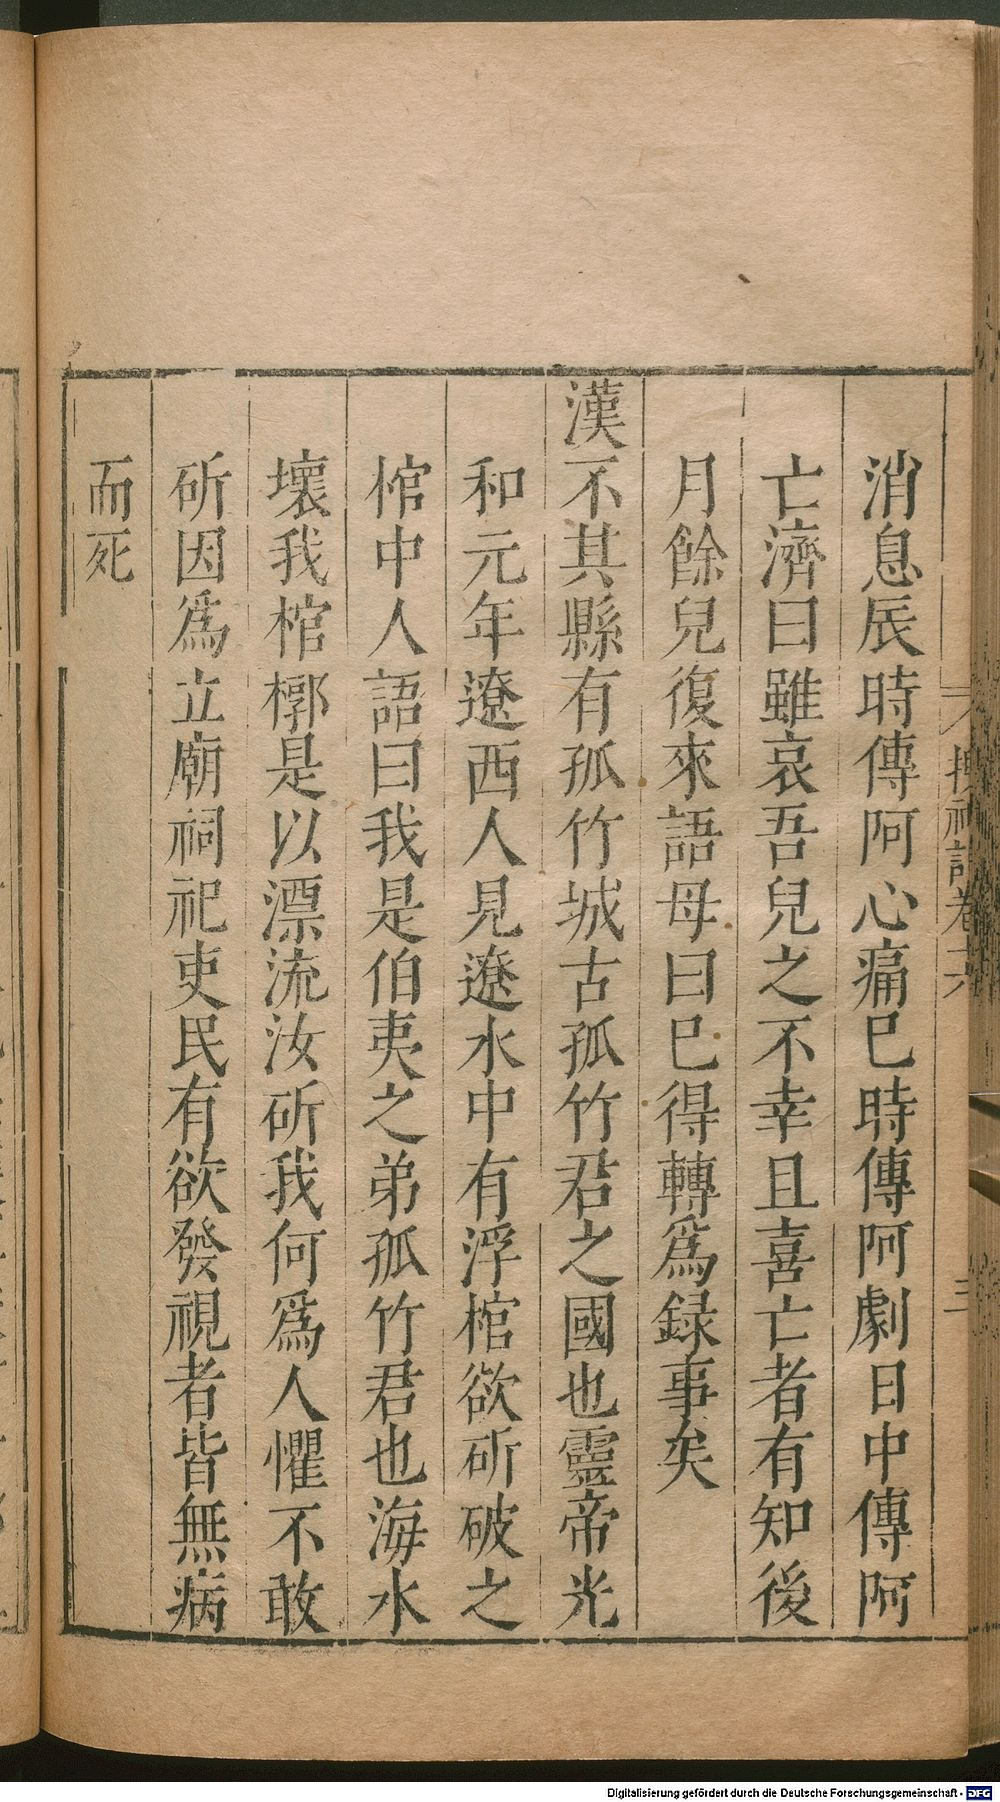 消息辰時傳阿心痛巳時傳阿劇日中傳阿
亡濟曰雖哀吾兒之不幸且喜亡者有知後
月餘兒復來語母曰巳得轉爲録事矣
漢不其縣有孤竹城古孤竹君之國也靈帝光
和元年遼西人見遼水中有浮棺欲斫破之
棺中人語曰我是伯夷之弟孤竹君也海水
壞我棺槨是以漂流汝斫我何爲人懼不敢
斫因爲立廟祠祀吏民有欲發視者皆無病
而死
搜神記卷六
三
Digitalisierung gefördert durch die Deutsche Forschungsgemeinschaft - DFG